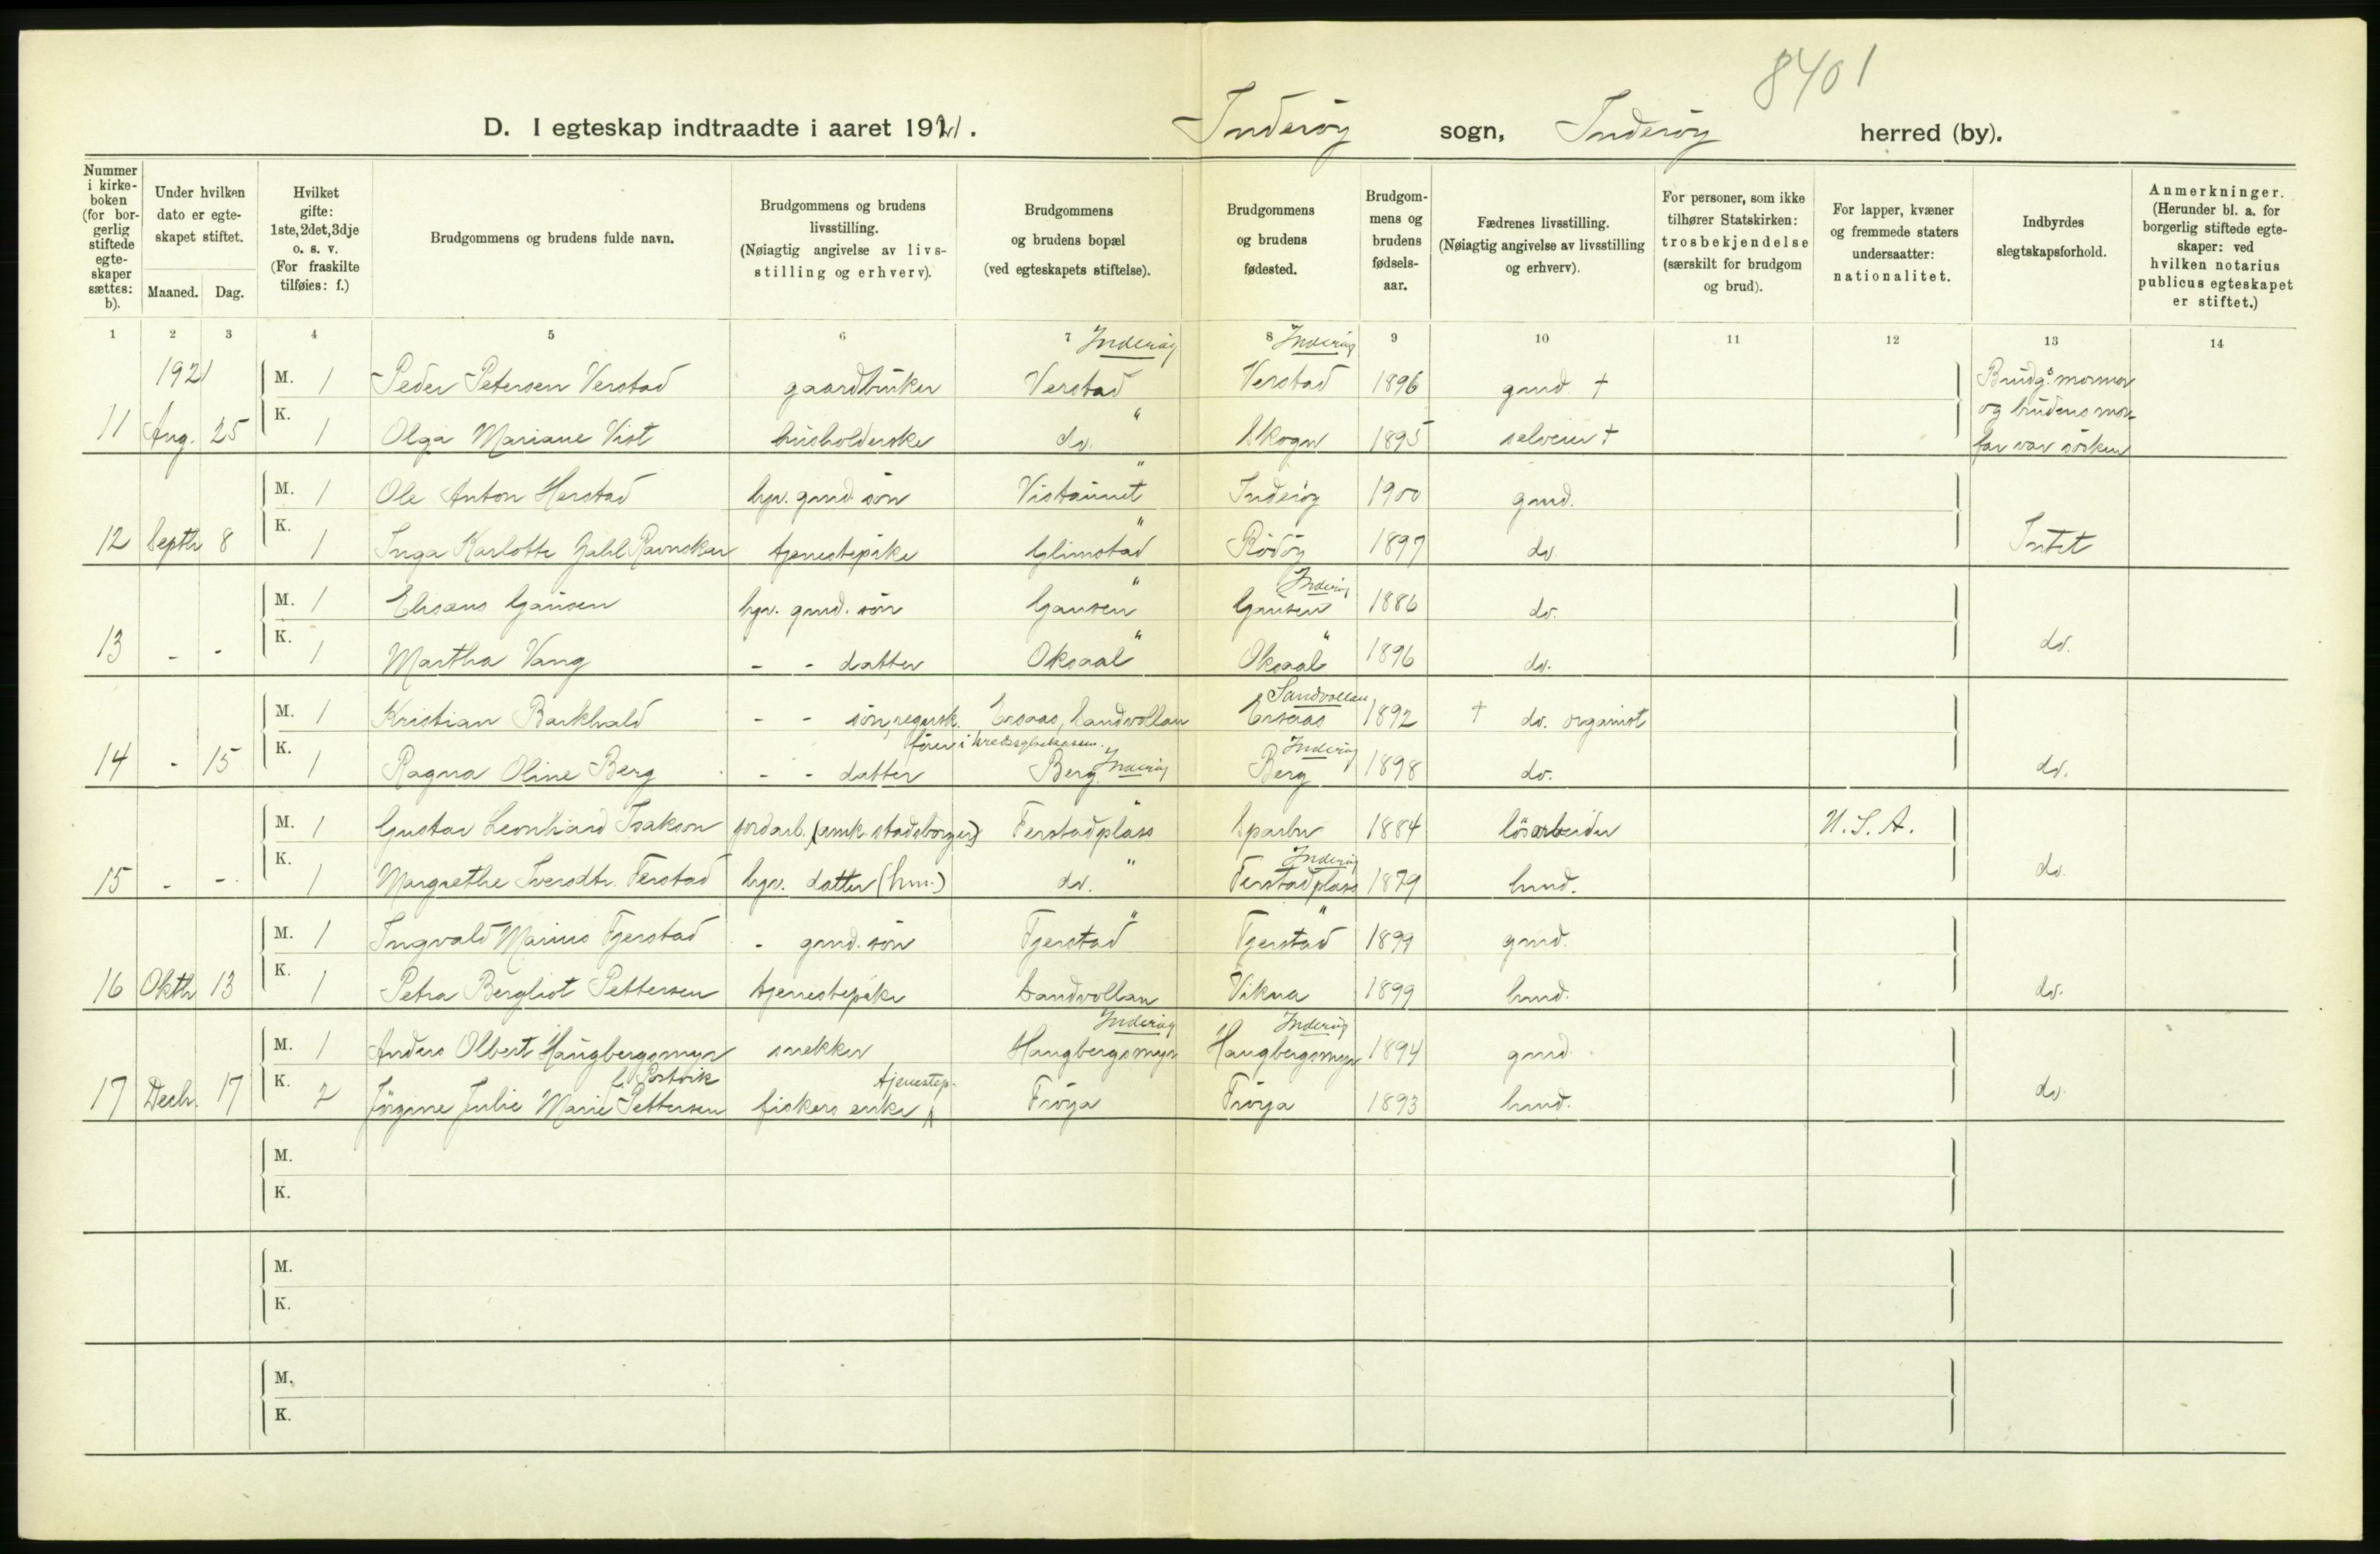 8401
D. I egteskap indtraadte i aaret 1921. Inderöy sogn, Inderöy herred (by).
Nummer i kirke-boken (for bor-gerlig stiftede egte-skaper sættes: b).
Under hvilken dato er egte-skapet stiftet.
Maaned. Dag.
Hvilket gifte: 1ste, 2det, 3dje o. s. v. (For fraskilte tilføies: f.)
Brudgommens og brudens fulde navn.
Brudgommens og brudens livsstilling. (Nøiagtig angivelse av livs-stilling og erhverv).
Brudgommens og brudens bopæl (ved egteskapets stiftelse).
Brudgommens og brudens fødested.
Brudgom-mens og brudens fødsels-aar.
Fædrenes livsstilling. (Nøiagtig angivelse av livsstilling og erhverv).
For personer, som ikke tilhører Statskirken: trosbekjendelse (særskilt for brudgom og brud).
For lapper, kvæner og fremmede staters undersaatter: nationalitet.
Indbyrdes slegtskapsforhold.
Anmerkninger. (Herunder bl. a. for borgerlig stiftede egte-skaper: ved hvilken notarius publicus egteskapet er stiftet.)
1 2 3 4 5 6 7 8 9 10 11 12 13 14
Inderöy Inderöy
1921 M. 1 Peder Petersen Verstad gaardbruker Verstad Verstad 1896 gmd. † Brudg.s mormor
og brudens mor-
11 Aug. 25 K. 1 Olga Mariane Vist husholderske do. " Skogn 1895 selveier † far var søsken
M. 1 Ole Anton Herstad hjv. gmd. sön Vistaunet " Inderöy 1900 gmd.
12 Septbr 8 K. 1 Inga Karlotte Gabl Ravnskar tjenestepike Glimstad " Rödöy 1897 do. Intet
Inderöy
M. 1 Elisæus Gausen hjv. gmd. sön Gausen " Gausen 1886 do.
13 - - K. 1 Martha Vang - - datter Oksaal " Oksaal " 1896 do. do.
Sandvollan
M. 1 Kristian Barkhald - - sön, regnsk. Ersaas, Sandvollan Ersaas 1892 † do. organist
förer i kredssykekassen. Inderöy
14 - 15 K. 1 Ragna Oline Berg - - datter Berg. Inderöy Berg 1898 do. do.
M. 1 Gustav Leonhard Isakson jordarb. (amk. stadsborger) Ferstadplass " Sparbu 1884 lösarbeider U.S.A.
Inderöy
15 - - K. 1 Margrethe Iversdtr. Ferstad hjv. datter (hm.) do. " Ferstadplass 1879 hmd. do.
M. 1 Ingvald Marius Fjerstad - gmd. sön Fjerstad " Fjerstad " 1899 gmd.
16 Oktbr 13 K. 1 Petra Bergliot Pettersen tjenestepike Sandvollan Vikna 1899 hmd. do.
Inderöy Inderöy
M. 1 Anders Olbert Haugbergsmyr snekker Haugbergsmyr Haugbergsmyr 1894 gmd.
tjenestep.
17 Decbr. 17 K. 2 Jörgine Julie Marie Pettersen fiskers enke Fröya Fröya 1893 hmd. do.
M.
K.
M.
K.
M.
K.